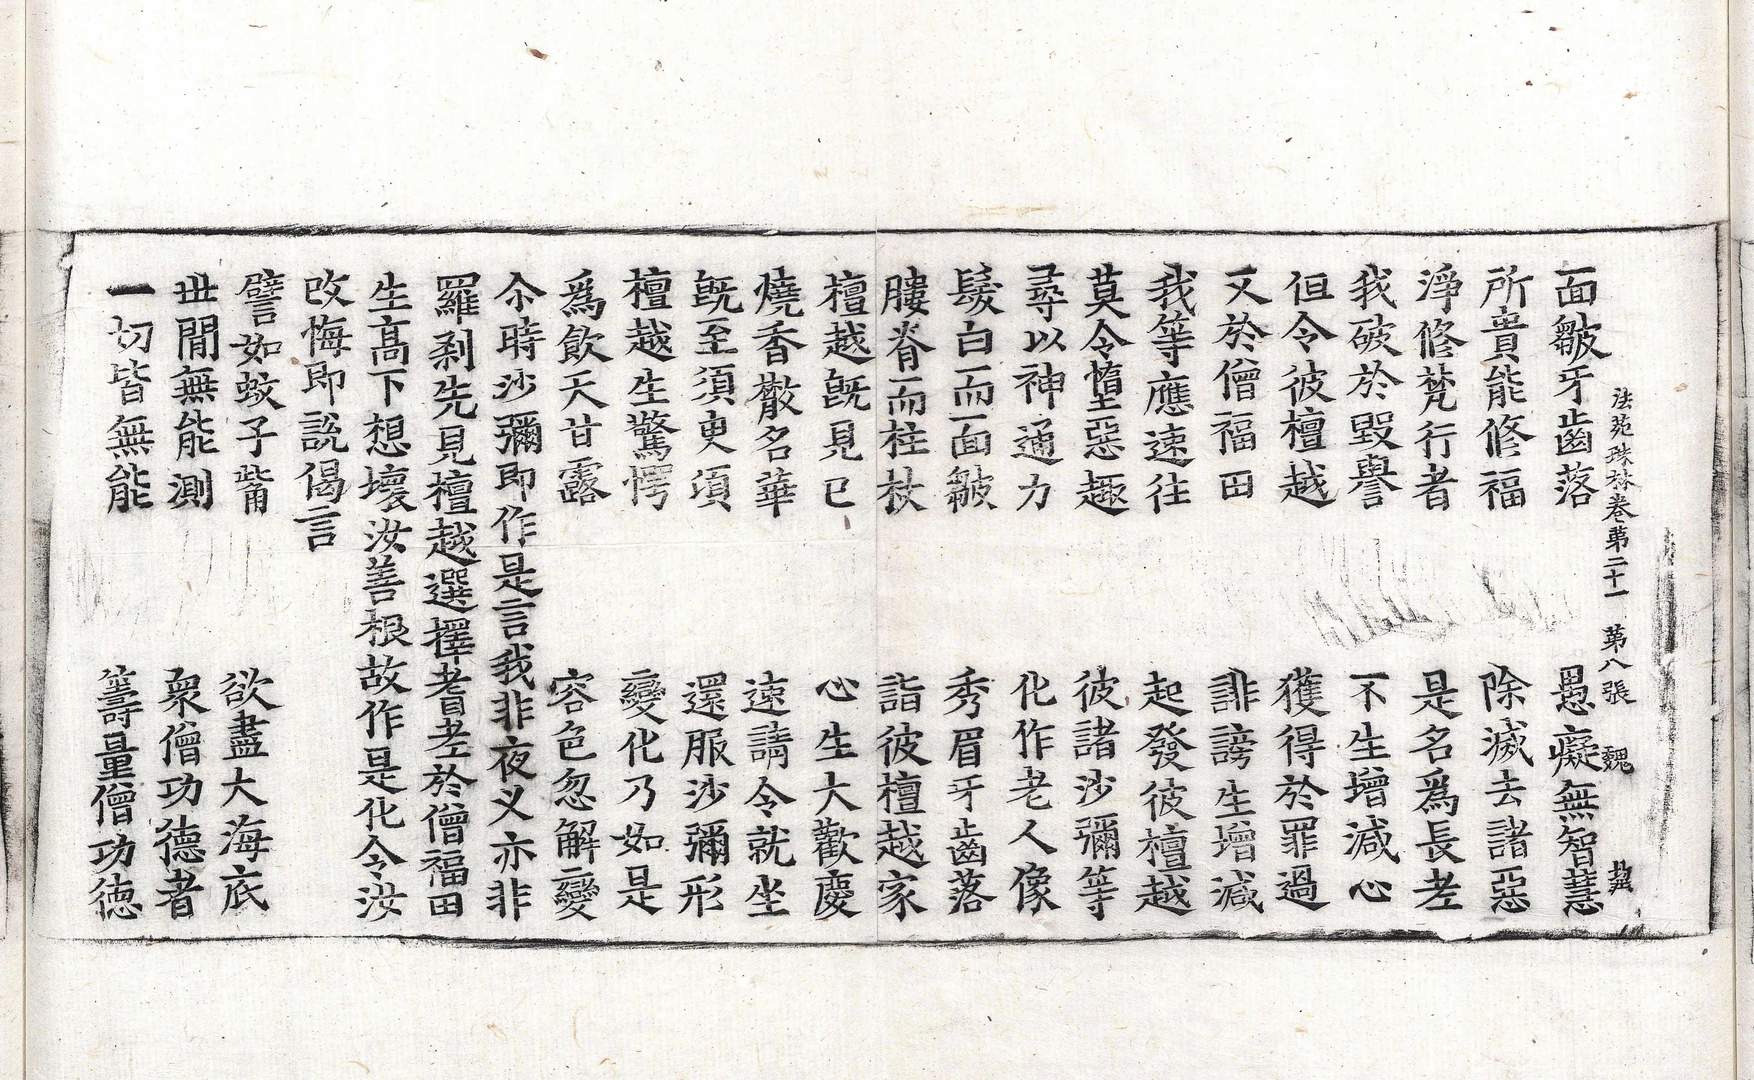 法苑珠林卷第二十一 第八張 魏
面皺牙齒落 愚癡無智慧
所貴能修福 除滅去諸惡
淨修梵行者 是名爲長老
我破於毀譽 不生增減心
但令彼檀越 獲得於罪過
又於僧福田 誹謗生增減
我等應速往 起發彼檀越
莫令墮惡趣 彼諸沙彌等
尋以神通力 化作老人像
髮白而面皺 秀眉牙齒落
膢脊而柱杖 詣彼檀越家
檀越旣見已 心生大歡慶
燒香散名華 速請令就坐
旣至須臾頃 還服沙彌形
檀越生驚愕 變化乃如是
爲飮天甘露 容色忽解變
尒時沙彌即作是言我非夜叉亦非
羅刹先見檀越選擇耆老於僧福田
生高下想壞汝善根故作是化令汝
改悔即說偈言
譬如蚊子觜 欲盡大海底
世閒無能測 衆僧功德者
一切皆無能 籌量僧功德